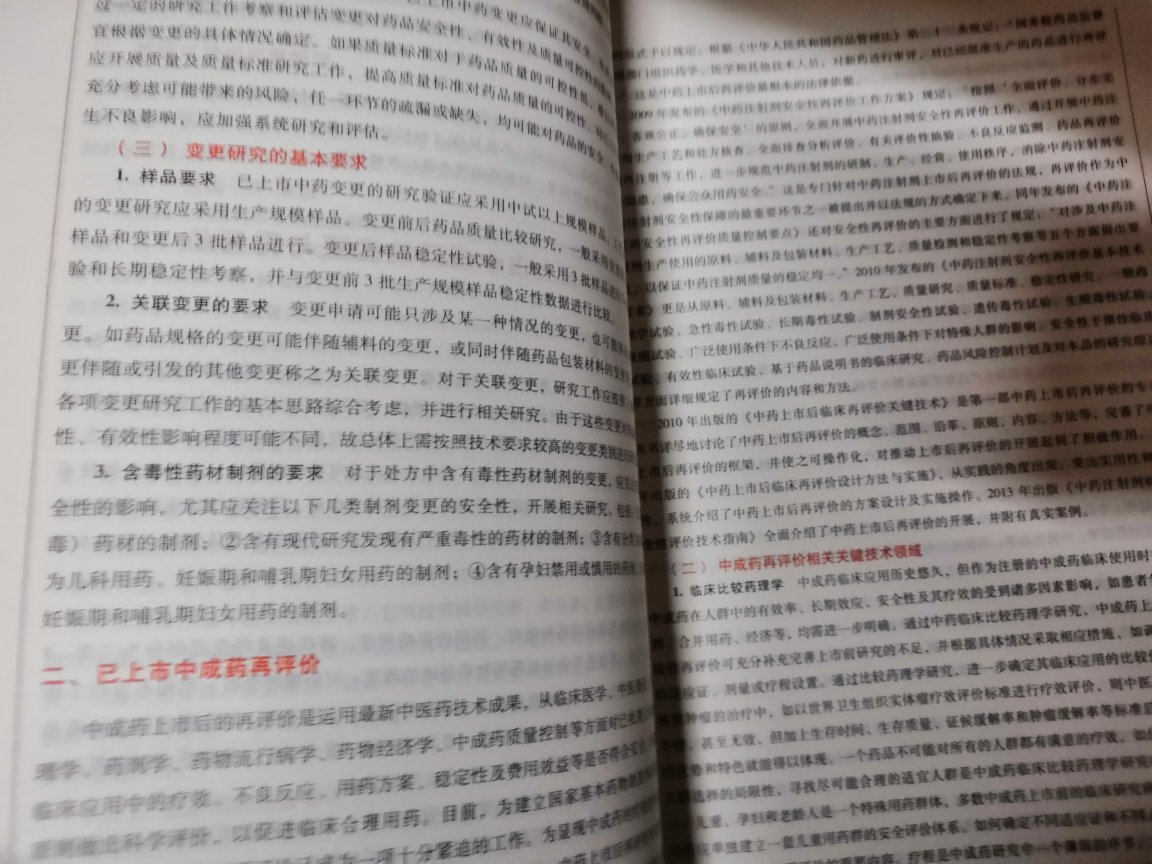 过一定的研究工作考察和评估变更对药品安全性、有效性及质量可控性
市中药变更应保证其安全
宜根据变更的具体情况确定。如果质量标准对于药品质量的可控性低
应开展质量及质量标准研究工作，提高质量标准对药品质量的可控性。
充分考虑可能带来的风险，任一环节的疏漏或缺失，均可能对药品的安全
生不良影响，应加强系统研究和评估。
（三）变更研究的基本要求
1. 样品要求 已上市中药变更的研究验证应采用中试以上规模样品，
的变更研究应采用生产规模样品。变更前后药品质量比较研究，一般采用变更前
样品和变更后 3 批样品进行。变更后样品稳定性试验，一般采用 3 批样品进行
验和长期稳定性考察，并与变更前 3 批生产规模样品稳定性数据进行比较。
2. 关联变更的要求 变更申请可能只涉及某一种情况的变更，也可能
更。如药品规格的变更可能伴随辅料的变更，或同时伴随药品包装材料的变更
更伴随或引发的其他变更称之为关联变更。对于关联变更，研究工作应按照
各项变更研究工作的基本思路综合考虑，并进行相关研究。由于这些变更
性、有效性影响程度可能不同，故总体上需按照技术要求较高的变更类别进行
3. 含毒性药材制剂的要求 对于处方中含有毒性药材制剂的变更，应关注
全性的影响，尤其应关注以下几类制剂变更的安全性，开展相关研究。包括
毒）药材的制剂；②含有现代研究发现有严重毒性的药材的制剂；③含有
为儿科用药、妊娠期和哺乳期妇女用药的制剂；④含有孕妇禁用或慎用的药材
妊娠期和哺乳期妇女用药的制剂。
二、已上市中成药再评价
中成药上市后的再评价是运用最新中医药技术成果，从临床医学、中医
理学、药剂学、药物流行病学、药物经济学、中成药质量控制等方面对已批准
临床应用中的疗效、不良反应、用药方案、稳定性及费用效益等是否符合安全
原则做出科学评价，以促进临床合理用药。目前，为建立国家基本药物制度
成为一项十分紧迫的工作。为显现中成药的
中药上市后再
形式予以规定。根据《中华人民共和国药品管理法》第三十三条规定：“国务院药品监督
部门组织药学、医学和其他技术人员，对新药进行审评，对已经批准生产的药品进行再评
这是中药上市后再评价最根本的法律依据。
2009 年发布的《中药注射剂安全性再评价工作方案》规定：“按照‘全面评价、分步实
客观公正、确保安全’的原则，全面开展中药注射剂安全性再评价工作，通过开展中药注
剂生产工艺和处方核查、全面排查分析评价、有关评价性抽验、不良反应监测、药品再评价
再注册等工作，进一步规范中药注射剂的研制、生产、经营、使用秩序，消除中药注射剂安
隐患，确保公众用药安全。”这是专门针对中药注射剂上市后再评价的法规，再评价作为中
注射剂安全性保障的最重要环节之一被提出并以法规的方式确定下来。同年发布的《中药注
剂安全性再评价质量控制要点》还对安全性再评价的主要方面进行了规定：“对涉及中药注
剂生产使用的原料、辅料及包装材料、生产工艺、质量检测和稳定性考察等五个方面提出要
，以保证中药注射剂质量的稳定均一。”2010 年发布的《中药注射剂安全性再评价基本技术
求》更是从原料、辅料及包装材料、生产工艺、质量研究、质量标准、稳定性研究、一般药
学试验、急性毒性试验、长期毒性试验、制剂安全性试验、遗传毒性试验、生殖毒性试验、
试验、广泛使用条件下不良反应、广泛使用条件下对特殊人群的影响、安全性干预性临床
试验、有效性临床试验、基于药品说明书的临床研究、药品风险控制计划及对本品的研究综述
方面详细规定了再评价的内容和方法。
2010 年出版的《中药上市后临床再评价关键技术》是第一部中药上市后再评价的专
书详尽地讨论了中药上市后再评价的概念、范围、沿革、原则、内容、方法等，完善了
上市后再评价的框架，并使之可操作化，对推动上市后再评价的开展起到了积极作用。
年出版的《中药上市后临床再评价设计方法与实施》，从实践的角度出发，突出实用性和
性，系统介绍了中药上市后再评价的方案设计及实施操作。2013 年出版《中药注射剂
全性评价技术指南》全面介绍了中药上市后再评价的开展，并附有真实案例。
（二）中成药再评价相关关键技术领域
1. 临床比较药理学 中成药临床应用历史悠久，但作为注册的中成药临床使用时
成药在人群中的有效率、长期效应、安全性及其疗效的受到诸多因素影响，如患者
、合并用药、经济等，均需进一步明确。通过中药临床比较药理学研究，中成药上
再评价可充分补充完善上市前研究的不足，并根据具体情况采取相应措施、如调
适应证、剂量或疗程设置。通过比较药理学研究，进一步确定其临床应用的比较
肿瘤的治疗中，如以世界卫生组织实体瘤疗效评价标准进行疗效评价，则中医
甚至无效，但加上生存时间、生存质量、证候缓解率和肿瘤缓解率等标准
优势和特色就能得以体现。一个药品不可能对所有的人群都有满意的疗效，如
人群选择的局限性、寻找尽可能合理的适宜人群是中成药临床比较药理学研究
儿童、孕妇和老龄人是一个特殊用药群体，多数中成药上市前的临床研究
应单独建立一套儿童用药群的安全评价体系。如何确定不同适应证和不同
的重要内容。疗程是中成药研究中一个薄弱的环节，